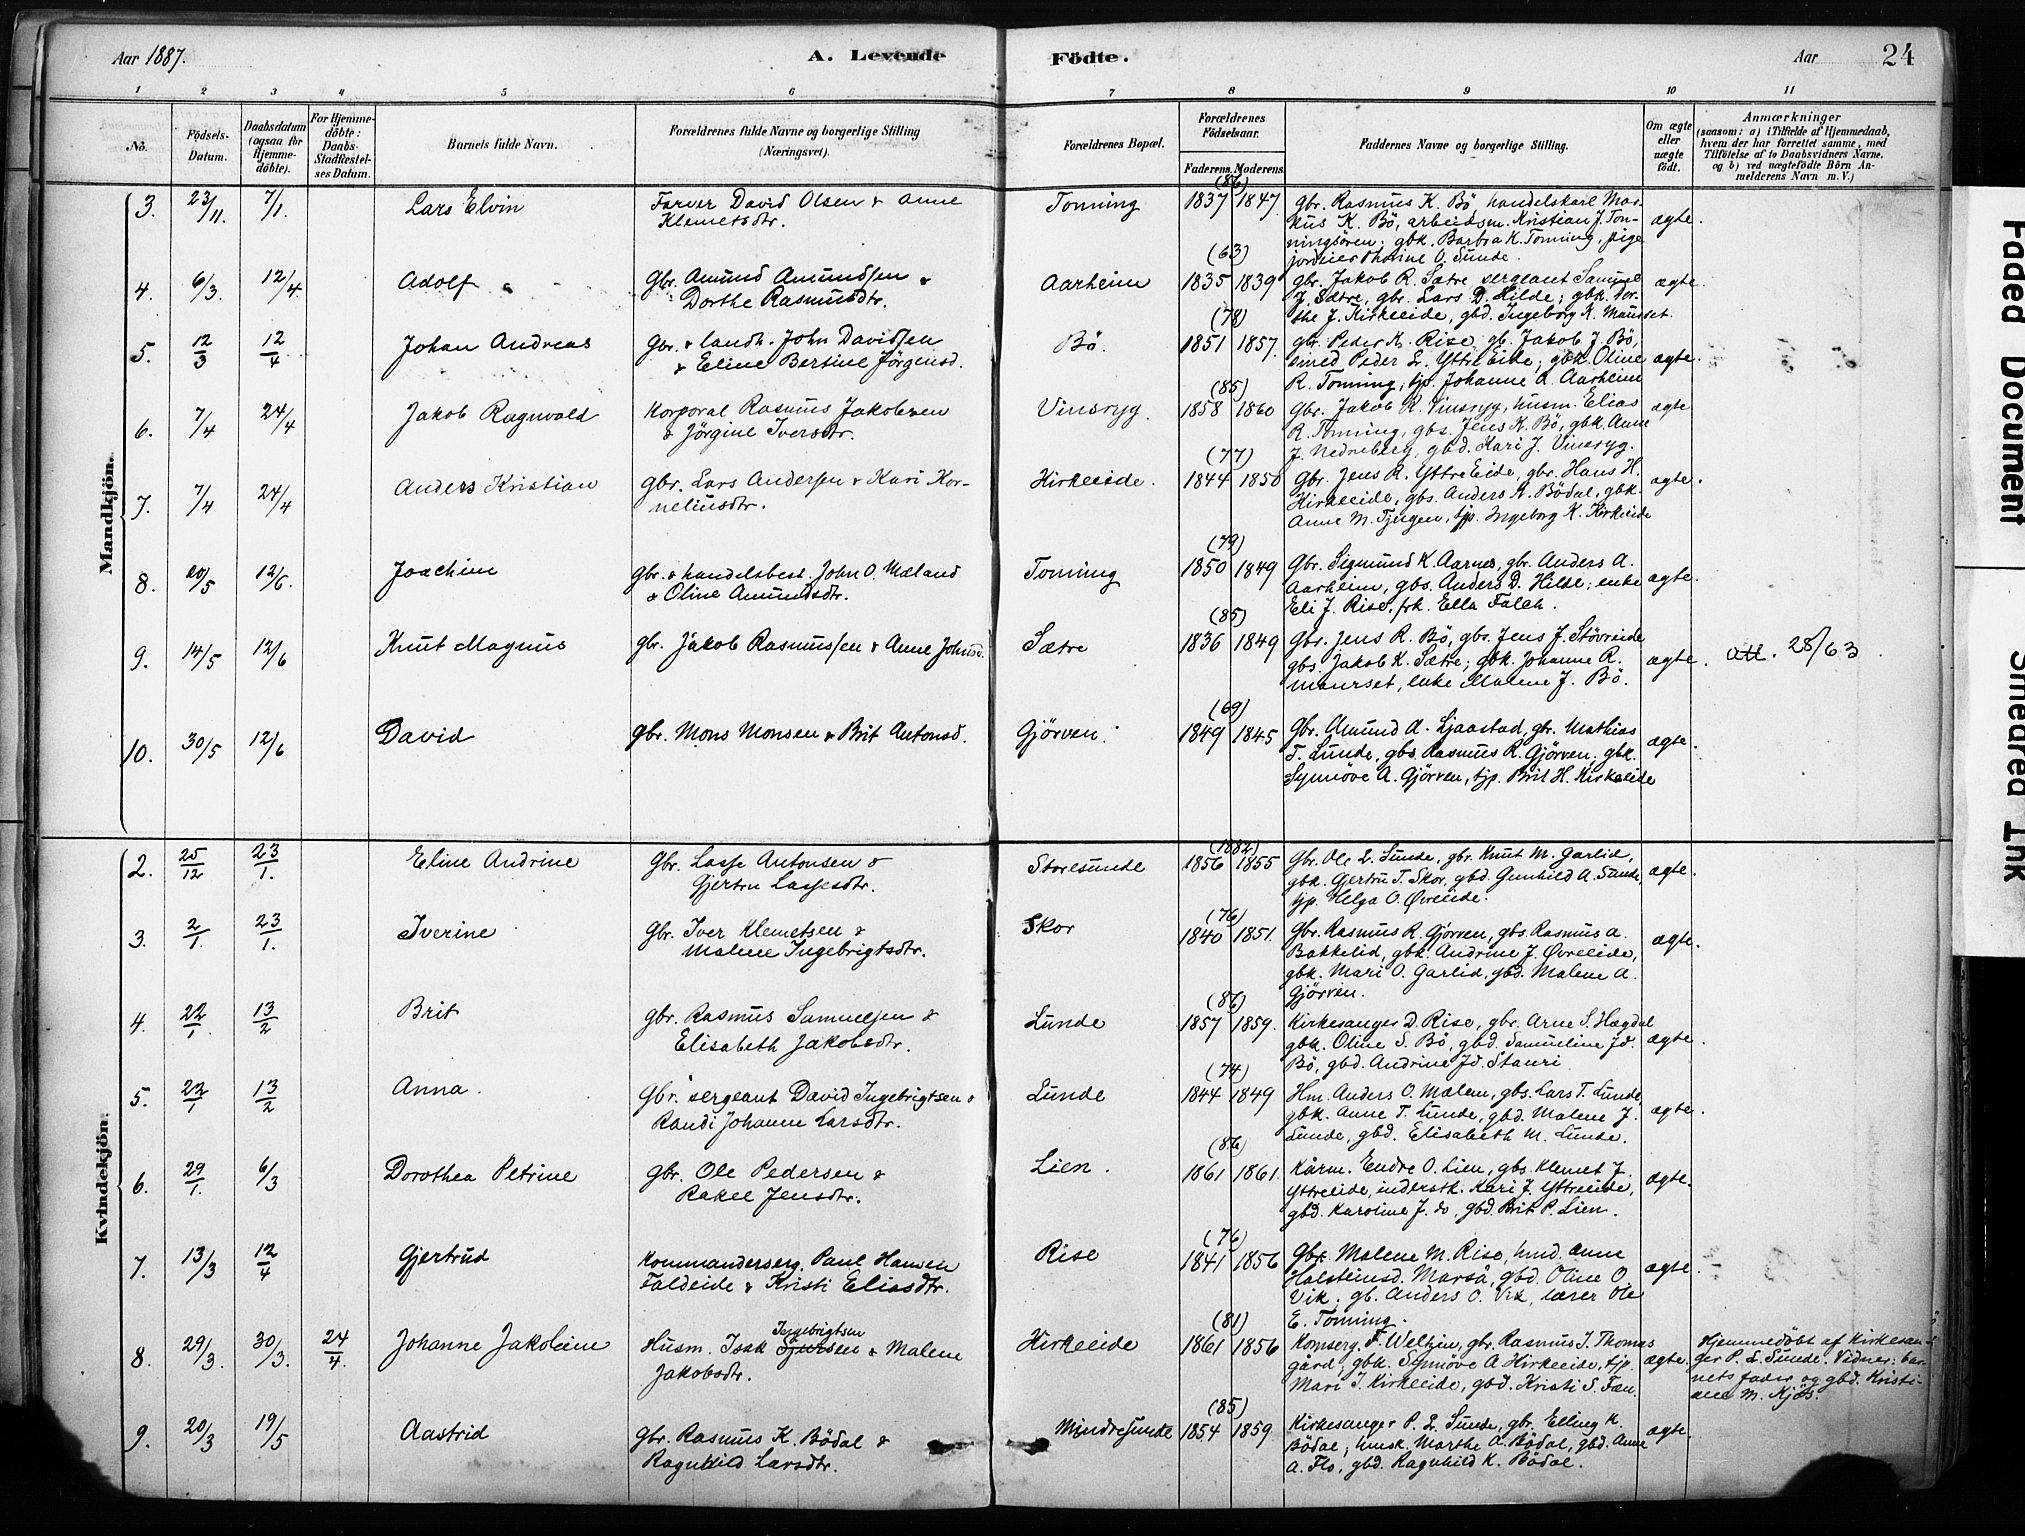 Aar 1887.
A. Levende
Födte.
Aar
24
1 2 3 4 5 6 7 8 9 10 11
No.
Födsels-Datum.
Daabsdatum (ogsaa for Hjemme-döbte).
For Hjemme-döbte: Daabs-Stadfæstel-ses Datum.
Barnets fulde Navn.
Forældrenes fulde Navne og borgerlige Stilling (Næringsvei).
Forældrenes Bopæl.
Forældrenes Födselsaar.
Faderens. Moderens.
Faddernes Navne og borgerlige Stilling.
Om ægte eller uægte født.
Anmærkninger
(saasom: a) i Tilfælde af Hjemmedaab, hvem der har forrettet samme, med Tilföielse af to Daabsvidners Navne, og b) ved uægtefödte Börn An-melderens Navn m. V.)
Mandkjön.
3. 23/11. 7/1. Lars Elvin
Farver David Olsen & Anne
Klemetsdtr.
Tonning (86) 1837 1847
Gbr. Rasmus K. Bö, handelskarl Mar-
kus K. Bö, arbeidsm. Kristian J. Ton-
ningsören; gbk. Barbra K. Tonning, pige
Thorine O. Sunde.
ægte.
4. 6/3. 12/4. Adolf
Gbr. Amund Amundsen &
Dorthe Rasmusdtr.
Aarheim (63) 1835 1839
gbr. Jakob R. Sætre, sergeant Samuel
J. Sætre, gbr. Lars D. Hilde; gbk. Dor-
the J. Kirkeeide, gbd. Ingeborg K. Maurset.
ægte.
5. 12/3 12/4 Johan Andreas
Gbr. & landh. John Davidsen
& Eline Bertine Jörgensd.
Bö. (78) 1851 1857.
gbr. Peder K. Rise, gb. Jakob J. Bö,
smed Peder L. Ytre Eide; gbk. Oline
R. Tonning, tjp. Johanne A. Aarheim
ægte.
6. 7/4 24/4 Jakob Ragnvald
Korporal Rasmus Jakobsen
& Jörgine Iversdtr.
Vinsryg. (85) 1858 1860
Gbr. Jakob R. Vinsryg, husm. Elias
R. Tonning, gbs. Jens K. Bö, gbk. Anne
J. Nedreberg, gbd. Kari J. Vinsryg.
ægte
7. 7/4 24/4 Anders Kristian
gbr. Lars Andersen & Kari Kor-
neliusdtr.
Kirkeeide. (77) 1844 1850
Gbr. Jens R. Ytre Eide, gbr. Hans H.
Kirkeeide, gbs. Anders R. Bödal, gbk.
Anne M. Tjugen, tjp. Ingeborg K. Kirkeeide
ægte.
8. 20/5 12/6. Joachim
gbr. & handelsbest. John O. Mæland
& Oline Amundsdtr.
Tonning (79) 1850 1849
Gbr. Sigmund K. Aarnes, gbr. Anders A.
Aarheim, gbs. Anders D. Hilde; enke
Eli J. Rise, frk. Ella Falch.
ægte.
9. 14/5 12/6 Knut Magnus
gbr. Jakob Rasmussen & Anne Johnsd.
Sætre (85) 1836 1849
Gbr. Jens R. Bö, gbs. Jens J. Stövreide
gbs. Jakob K. Sætre; gbk. Johanne R.
Maurset, enke Malene J. Bö.
ægte.
att. 28/63.
10. 30/5 12/6 David
gbr. Mons Monsen & Brit Antonsd.
Gjörven. (69) 1849 1845
Gbr. Amund A. Ljaastad, gbr. Mathias
T. Lunde, gbs. Rasmus R. Gjörven, gbk.
Synnöve A. Gjörven, tjp. Brit H. Kirkeeide
ægte.
Kvindekjön.
2. 25/12 23/1. Eline Andrine
Gbr. Lasse Antonsen &
Gjertru Lassesdtr.
Storesunde (1882) 1856 1855
Gbr. Ole L. Sunde, gbr. Knut M. Garlid,
gbk. Gjertru T. Skor, gbd. Gunhild A. Sunde,
tjp. Helga O. Övreeide.
ægte.
3. 2/1. 23/1. Iverine
Gbr. Iver Klemetsen &
Malene Ingebrigtsdtr.
Skor (76) 1840 1851.
Gbr. Rasmus R. Gjörven, gbs. Rasmus A.
Bakkelid, gbk. Andrine J. Övreeide,
gbk. Mari O. Garlid, gbd. Malene A.
Gjörven.
ægte.
4. 22/1. 13/2 Brit
gbr. Rasmus Samuelsen &
Elisabeth Jakobsdtr.
Lunde (86) 1857 1859.
Kirkesanger D. Rise, gbr. Arne S. Hægdal
gbk. Oline S. Bö, gbd. Samueline Jd.
Bö, gbd. Andrine Jd. Stauri
ægte.
5. 22/1 13/2 Anna.
Gbr. sergeant David Ingebrigtsen &
Randi Johanne Larsdtr.
Lunde (74) 1844 1849
Hm. Anders O. Mælen, gbs. Lars T. Lunde,
gbk. Anne T. Lunde, gbd. Malene J.
Lunde, gbd. Elisabeth M. Lunde.
ægte.
6. 29/1. 6/3 Dorothea Petrine
gbr. Ole Pedersen &
Rakel Jensdtr.
Lien. (86) 1861 1861.
Kårm. Endre O. Lien, gbs. Klemet J.
Ytreeide, inderstk. Kari J. Ytreeide,
gbd. Karoline J. do, gbd. Brit P. Lien.
ægte.
7. 13/3 12/4 Gjertrud
Kommanderserg. Paul Hansen
Faldeide & Kristi Eliasdtr.
Rise (76) 1841 1856
Gbk. Malene M. Rise, hmd. Anne
Holsteinsd. Marså, gbd. Oline O.
Vik; gb. Anders O. Vik, lærer Ole
E. Tonning.
ægte.
8. 29/3. 30/3. 24/4. Johanne Jakobine
Husm. Isak Ingebrigtsen & Malene
Jakobsdtr.
Kirkeeide (81) 1861 1856
Komserg. F. Welhin, gbr. Rasmus I. Thomas
gård, gbk. Synnöve A. Kirkeeide, tjp.
Mari J. Kirkeeide, gbd. Kristi S. Fæn.
ægte.
Hjemmedöbt af Kirkesan-
ger P. L. Sunde. Vidner: bar-
nets fader og gbd. Kristi-
ane M. Kjös.
9. 20/3 19/5 Aastrid
Gbr. Rasmus K. Bödal &
Ragnhild Larsdtr.
Mindresunde (85) 1854 1859
Kirkesanger P. L. Sunde, gbr. Elling K.
Bödal; husk. Marthe A. Bödal, gbd. Anne
A. Flo, gbd. Ragnhild K. Bödal.
ægte.
Faded Document
Smeared Ink